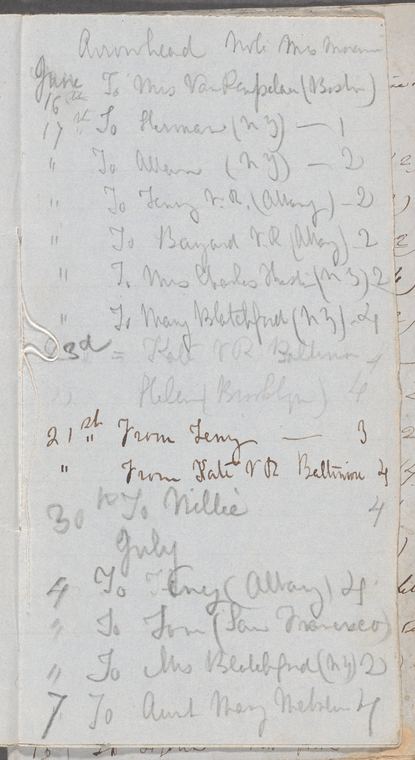 Arrowhead Note Mrs
June To Mrs Van Rensselaer (Boston)
16th
17th To Herman (N Y) — 1
" To Allan (N Y) — 2
" To Fenny V. R. (Albany) — 2
" To Bayard V R (Albany) 2
" To Mrs Charles (N Y) 2
" To Mary Blatchford (N Y) - 4
23d = Kate V R Baltimore 4
" Helen (Brooklyn) 4
21st " From Fenny — 3
" From Kate V R Baltimore 4
30th To Willie 4
July
4 To (Albany) 4
" To Tom (San Francisco)
" To Mrs Blatchford (N Y) 2
7 To Aunt Mary 4